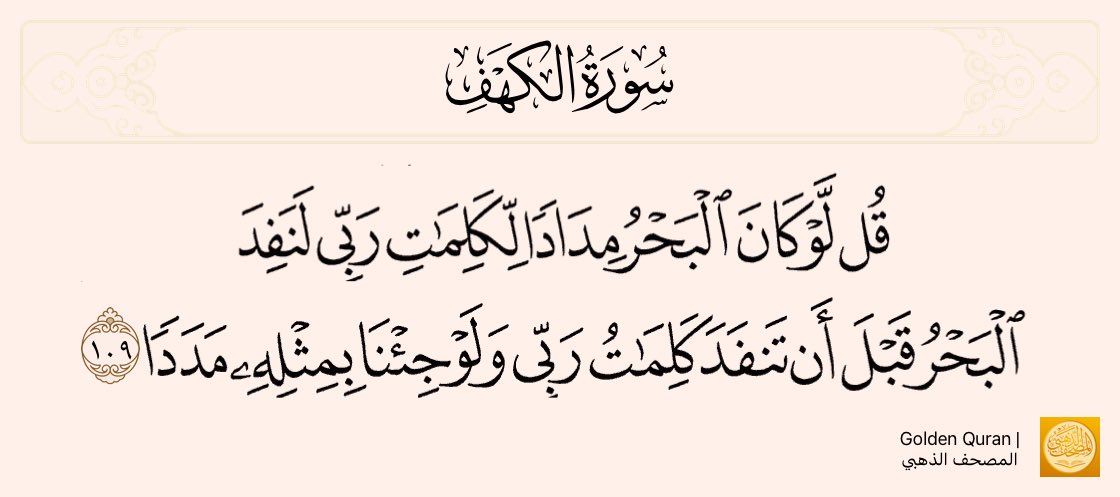 سُورَةُ الكَهْفِ
قُل لَّوْ كَانَ ٱلْبَحْرُ مِدَادًا لِّكَلِمَٰتِ رَبِّى لَنَفِدَ
ٱلْبَحْرُ قَبْلَ أَن تَنفَدَ كَلِمَٰتُ رَبِّى وَلَوْ جِئْنَا بِمِثْلِهِۦ مَدَدًا ١٠٩
Golden Quran |
المصحف الذهبي
المصحف الذهبي